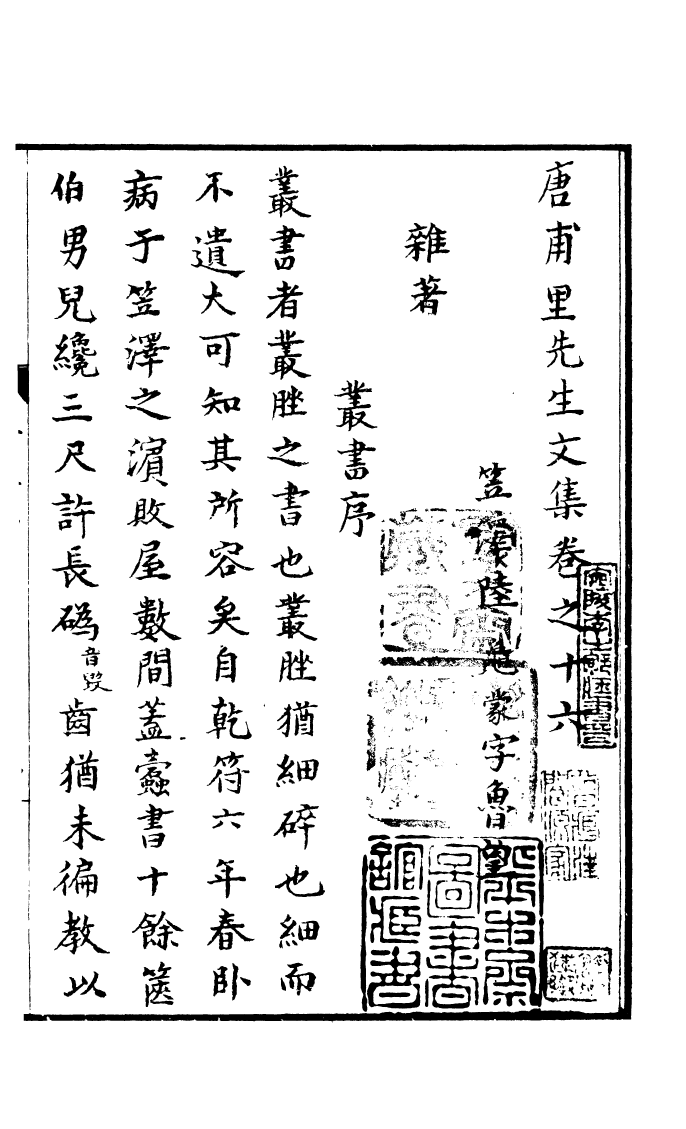 唐甫里先生文集卷之十六
笠澤陸龜蒙字魯望
雜著
叢書序
叢書者叢脞之書也叢脞猶細碎也細而
不遺大可知其所容矣自乾符六年春卧
病于笠澤之濵敗屋數間蓋蠹書十餘篋
伯男兒纔三尺許長䃣音毀齒猶未徧教以